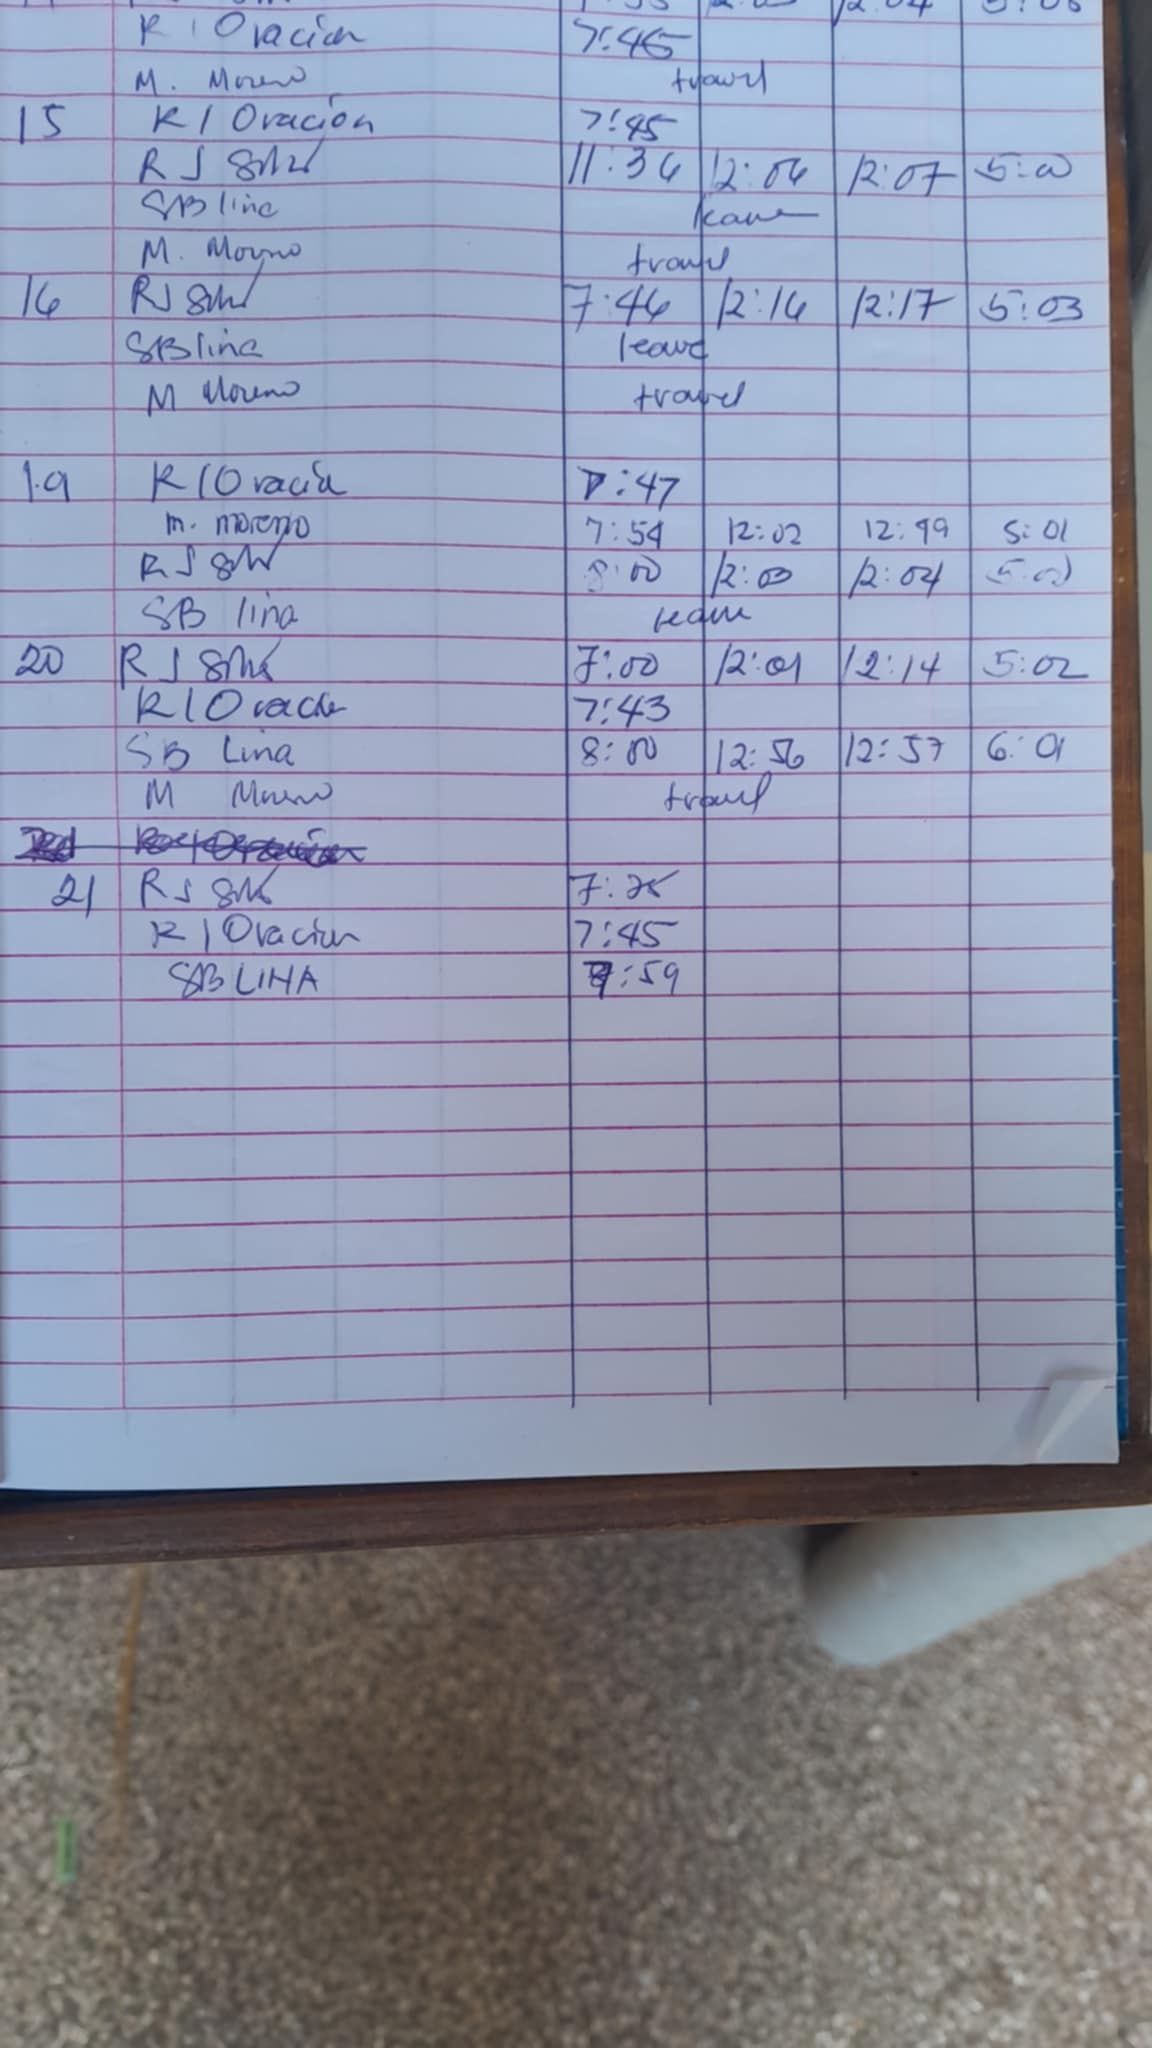 K I Oracion 7:45
M. Moreno travel
15 K I Oracion 7:45
RJ 11:36 12:06 12:07 5:00
SB lina leave
M. Moreno travel
16 RJ 7:46 12:16 12:17 5:03
SB lina leave
M Moreno travel
19 K I Oracion 7:47
m. moreno 7:54 12:02 12:49 5:01
RJ 8:00 12:03 12:04 5:00
SB lina leave
20 RJ 7:00 12:01 12:14 5:02
K I Oracion 7:43
SB Lina 8:00 12:56 12:57 6:01
M Moreno travel
21 RJ 7:25
K I Oracion 7:45
SB LINA 7:59